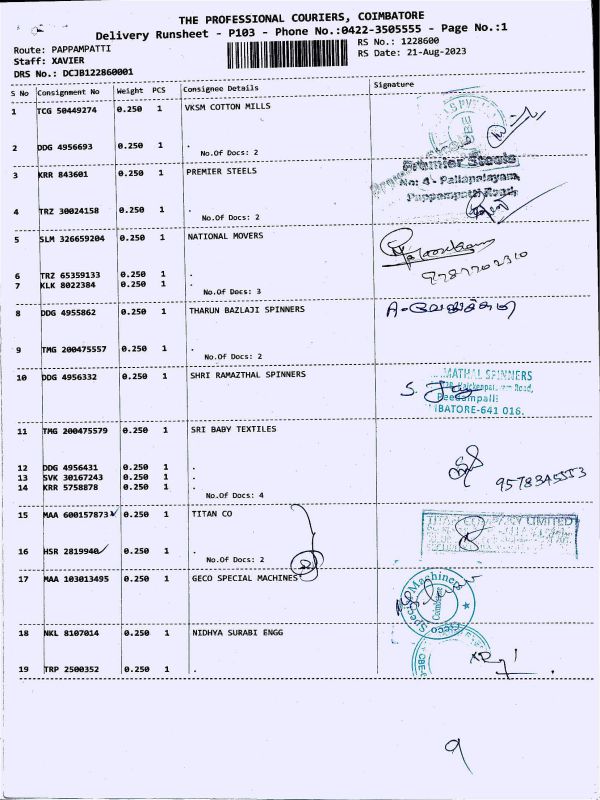 THE PROFESSIONAL COURIERS, COIMBATORE
Delivery Runsheet - P103 - Phone No.:0422-3505555 - Page No.:1
Route: PAPPAMPATTI
RS No.: 1228600
Staff: XAVIER
RS Date: 21-Aug-2023
DRS No.: DCJB122860001
S No Consignment No Weight PCS Consignee Details Signature
1 TCG 50449274 0.250 1 VKSM COTTON MILLS
2 DDG 4956693 0.250 1 .
No.Of Docs: 2
3 KRR 843601 0.250 1 PREMIER STEELS
Premier Steels
No: 4- Pallapalayam,
Pappampatti Road,
4 TRZ 30024158 0.250 1 .
No.Of Docs: 2
5 SLM 326659204 0.250 1 NATIONAL MOVERS
9787702310
6 TRZ 65359133 0.250 1 .
7 KLK 8022384 0.250 1 .
No.Of Docs: 3
8 DDG 4955862 0.250 1 THARUN BAZLAJI SPINNERS
9 TMG 200475557 0.250 1 .
No.Of Docs: 2
10 DDG 4956332 0.250 1 SHRI RAMAZTHAL SPINNERS
MATHAL SPINNERS
Road,
Peedampalli
IBATORE-641 016.
11 TMG 200475579 0.250 1 SRI BABY TEXTILES
12 DDG 4956431 0.250 1 .
13 SVK 30167243 0.250 1 .
14 KRR 5758878 0.250 1 .
9578345553
No.Of Docs: 4
15 MAA 600157873 0.250 1 TITAN CO
TITAN COMPANY LIMITED
16 HSR 2819940 0.250 1 .
No.Of Docs: 2
2
17 MAA 103013495 0.250 1 GECO SPECIAL MACHINES
Geco Special Machines
Coimbatore
18 NKL 8107014 0.250 1 NIDHYA SURABI ENGG
19 TRP 2500352 0.250 1 .
CBE
9